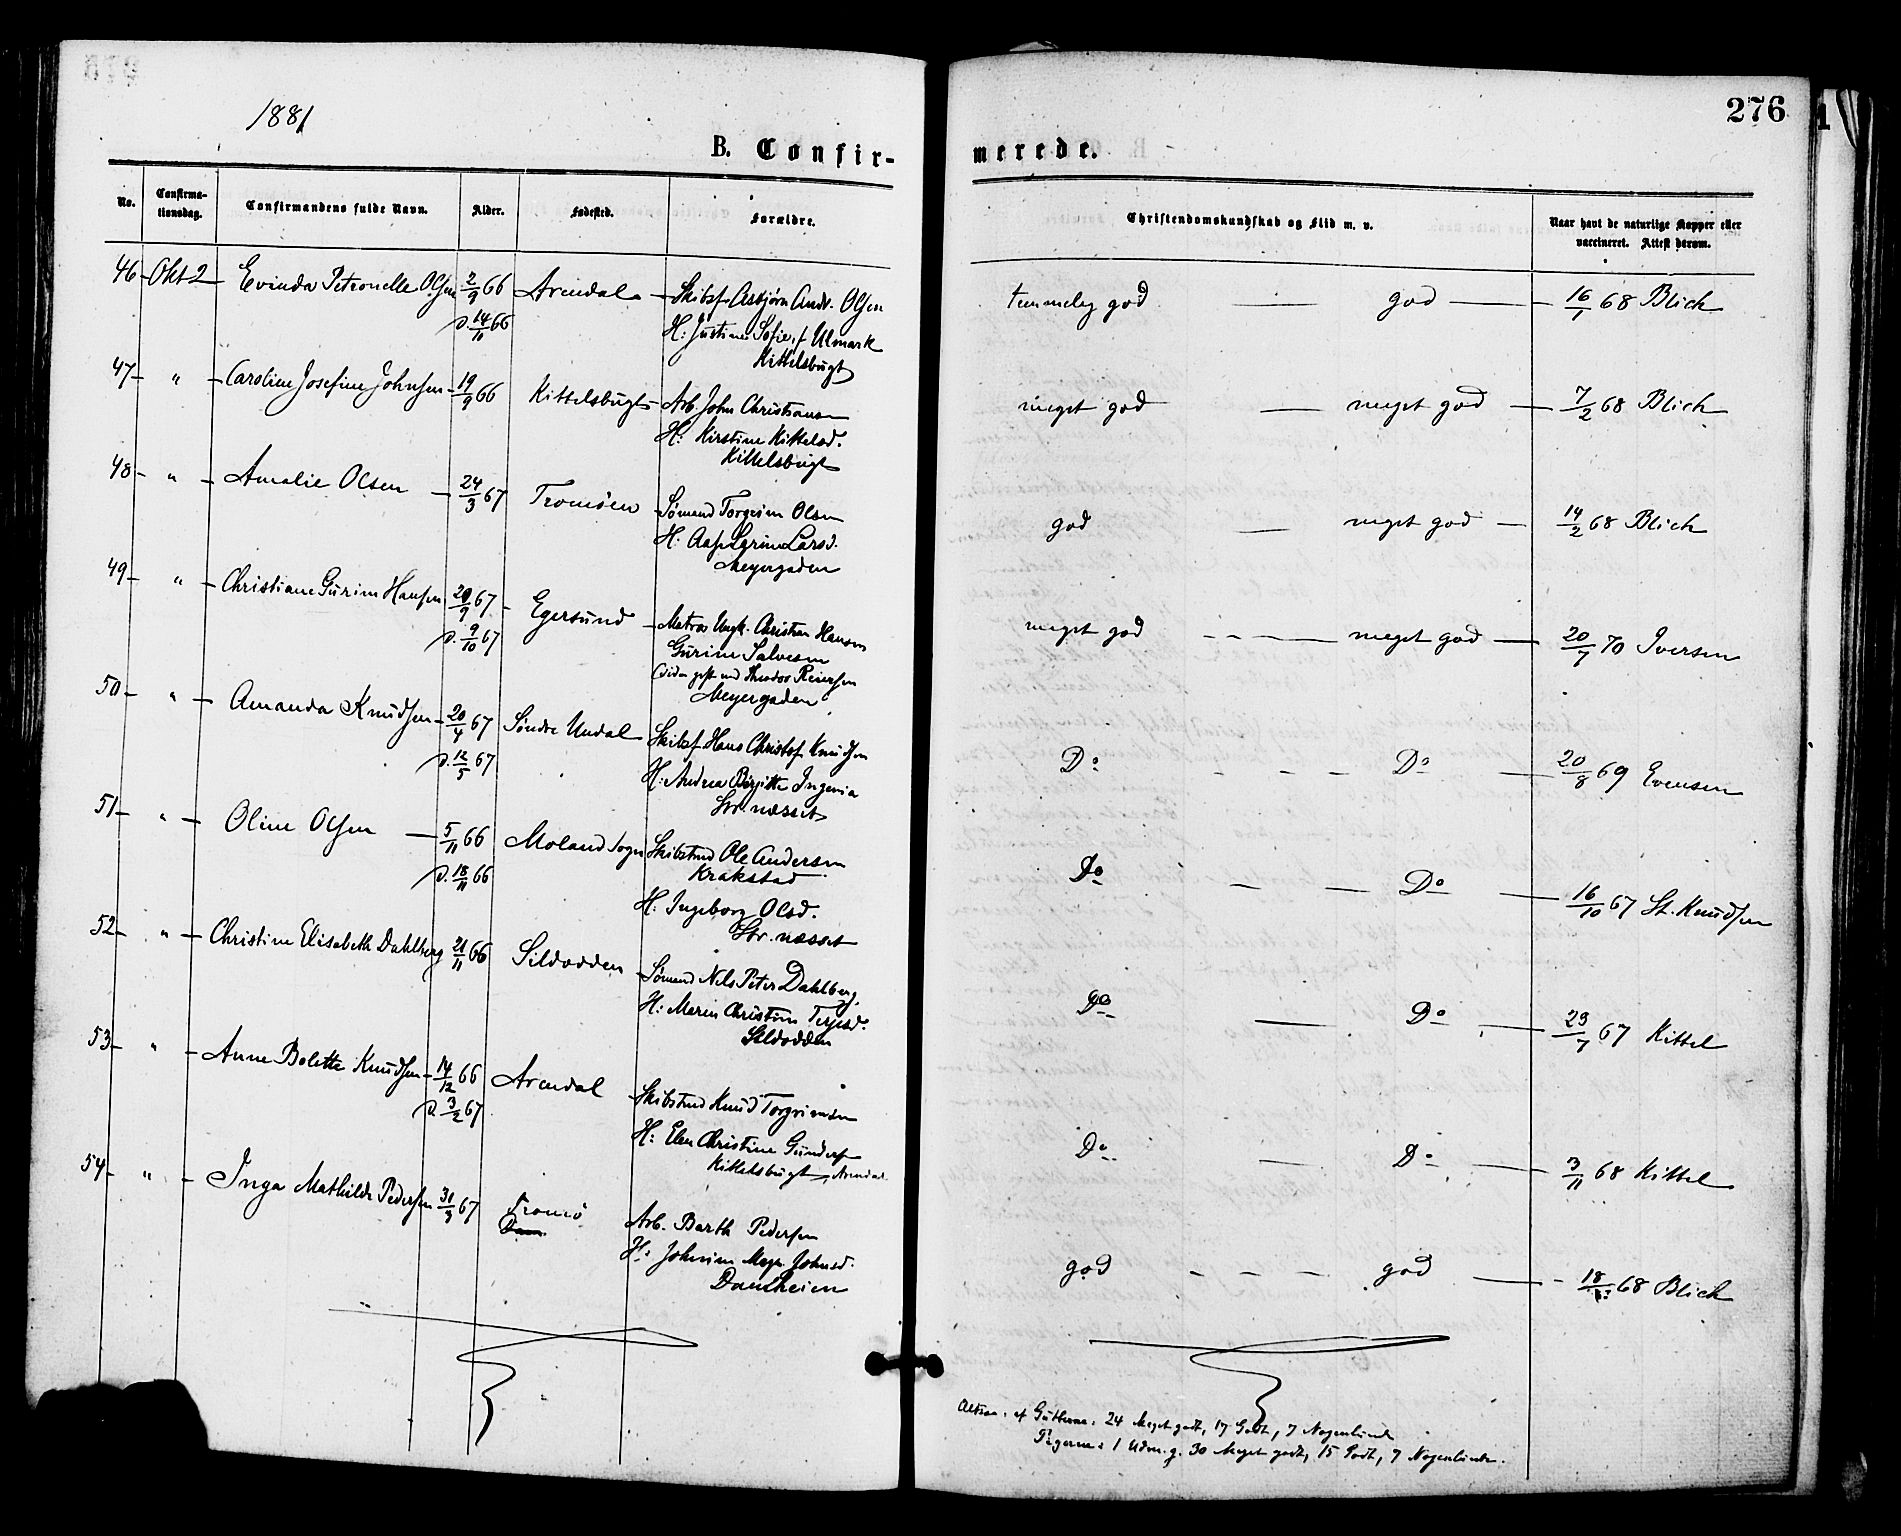 276
1881
B. Confir-
merede.
No.
Confirma-
tionsdag.
Confirmandens fulde Navn.
Alder.
Fødested.
Forældre.
Christendomskundskab og Flid m. v.
Naar havt de naturlige Kopper eller
vaccineret. Attest derom.
46 - Okt 2 - Evinda Petronelle Olsen 2/9 66 Arendal - Skibsf. Asbjørn Andr. Olsen
D. 14/11 66 H: Justine Sofie f. Ulmark
Kittelsbugt
temmelig god — god — 16/1 68 Blich
47 - " - Caroline Josefine Johnsen - 19/9 66 Kittelsbugt - Arb. John Christiansen
H: Kirstine Kittelsd.
Kittelsbugt
meget god — meget god — 7/2 68 Blich
48 - " - Amalie Olsen - 24/3 67 Tromøen Sømand Torgrim Olsen
H: Larsd.
Meyergaden
god — meget god — 14/2 68 Blich
49 - " - Christiane Gurine Hansen 20/9 67 - Egersund - Matros Ungk. Christian Hansen
D. 9/10 67 Gurine Salvesen
(siden gift med Theodor Reiersen
Meyergaden
meget god - - - — meget god — 20/7 70 Iversen
50 - " - Amanda Knudsen - 20/4 67 Søndre Undal - Skibsf. Hans Christof Knudsen
D. 12/5 67 H: Andrea Birgitte Ingenia
Str. næsset
Do - - - Do — 20/8 69 Evensen
51 - " - Oline Olsen — 5/11 66 Moland Sogn Skibstmd Ole Andersen
D. 18/11 66 Krakstad
H: Ingeborg Olsd.
Str. næsset
Do - — Do — 16/10 67 St. Knudsen
52 - " - Christine Elisabeth Dahlberg 21/11 66 Sildodden - Sømand Nils Peter Dahlberg
H: Maren Christine Terjesd.
Sildodden
Do — Do - — 23/7 67 Kittel
53 - " - Anne Bolette Knudsen - 14/12 66 Arendal - Skibstmd Knud Torgrimsen
D. 3/2 67 H: Elen Christine Gunders
Kittelsbugt, Arendal
Do — Do - — 3/11 68 Kittel
54 - " - Inga Mathilde Pedersen 31/3 67 Tromø Arb. Barth Pedersen
H: Johnsd.
Damheien
god - - - god — 18/ 68 Blich
Altsaa: af Gutterne: 24 Meget godt, 17 Godt, 7 Nogenlunde
Pigerne: 1 Udm. g. 30 Meget godt, 15 Godt, 7 Nogenlunde.